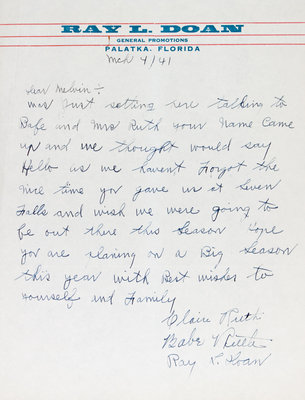 RAY L. DOAN
GENERAL PROMOTIONS
PALATKA, FLORIDA
Mch 4/41
Dear Melvin :-
Was Just setting here talking to
Babe and Mrs Ruth your Name Came
up and we thought would say
Hello as we havent Forgot the
nice time you gave us at Seven
Falls and wish we were going to
be out there this Season hope
you are planing on a Big Season
this year with Best wishes to
yourself and Family
Claire Ruth
Babe Ruth
Ray L. Doan